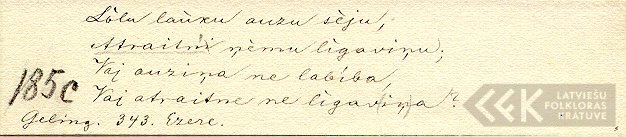 Lôlu lauku auzu sêju,
Atraitni ņêmu lîgaviņu;
Vaj auziņa ne labîba,
185c Vaj atraitne ne lîgaviņa?
Geling. 343. Ezere.
LATVIEŠU
FOLKLORAS
KRĀTUVE